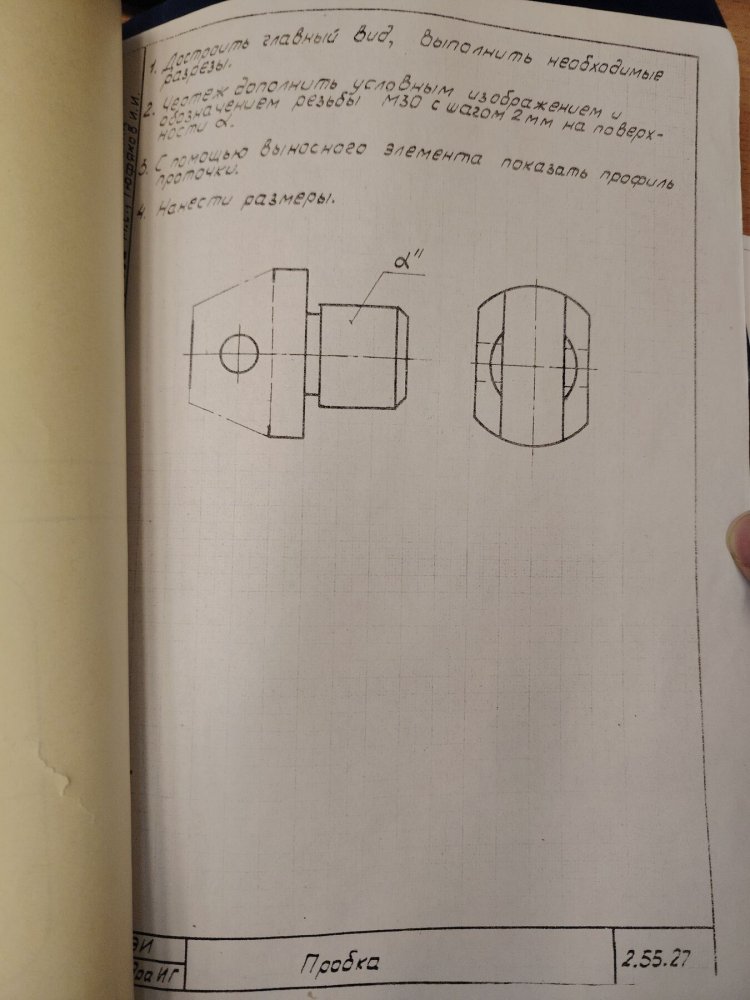 1. Достроить главный вид, выполнить необходимые
разрезы.
2. Чертеж дополнить условным изображением и
обозначением резьбы М30 с шагом 2мм на поверх-
ности α.
3. С помощью выносного элемента показать профиль
проточки.
4. Нанести размеры.
α"
Пробка
2.55.27